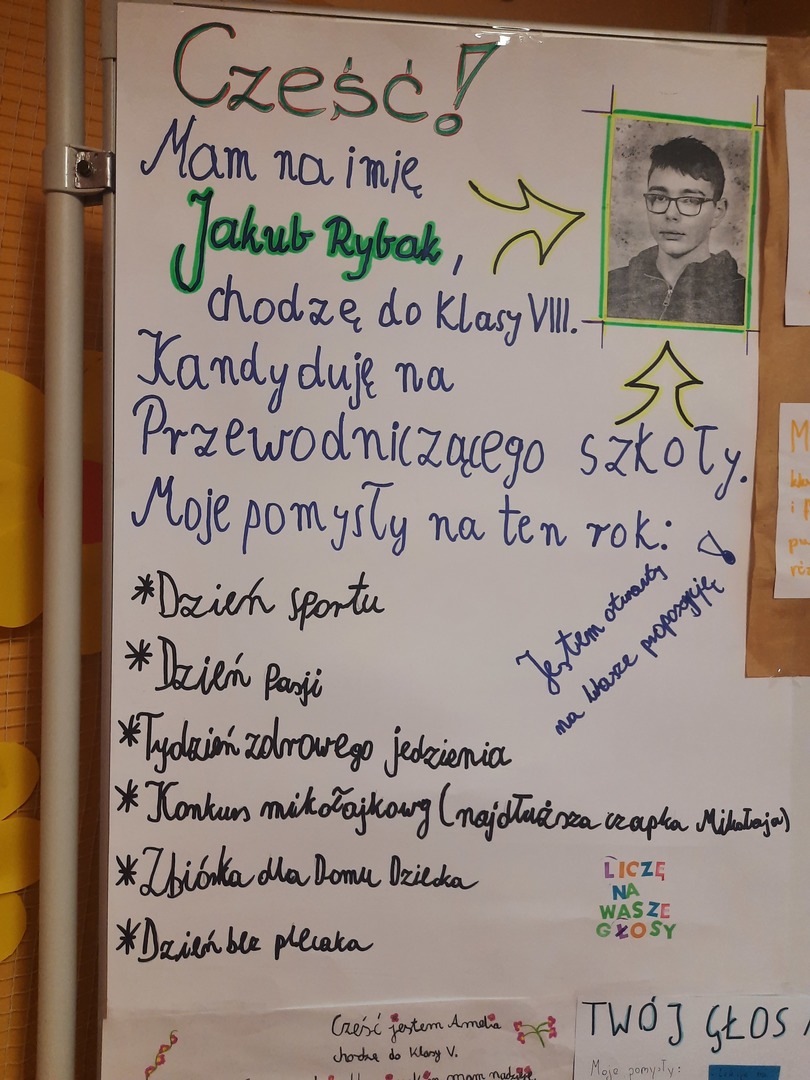 Cześć!
Mam na imię
Jakub Rybak,
chodzę do klasy VIII.
Kandyduję na
Przewodniczącego szkoły.
Moje pomysły na ten rok:
Jestem otwarty
na Wasze propozycję!
*Dzień sportu
*Dzień Pasji
*Tydzień zdrowego jedzienia
*Konkurs mikołajkowy (najdłuższa czapka Mikołaja)
*Zbiórka dla Domu Dziecka
*Dzień bez plecaka
LICZĘ
NA
WASZE
GŁOSY
Cześć jestem Amelia
chodzę do klasy V.
TWÓJ GŁOS
Moje pomysły:
M
i
pu
róż